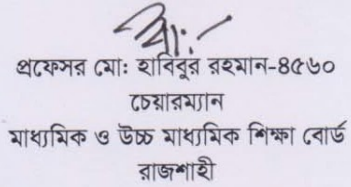 প্রফেসর মো: হাবিবুর রহমান-৪৫৬০
চেয়ারম্যান
মাধ্যমিক ও উচ্চ মাধ্যমিক শিক্ষা বোর্ড
রাজশাহী